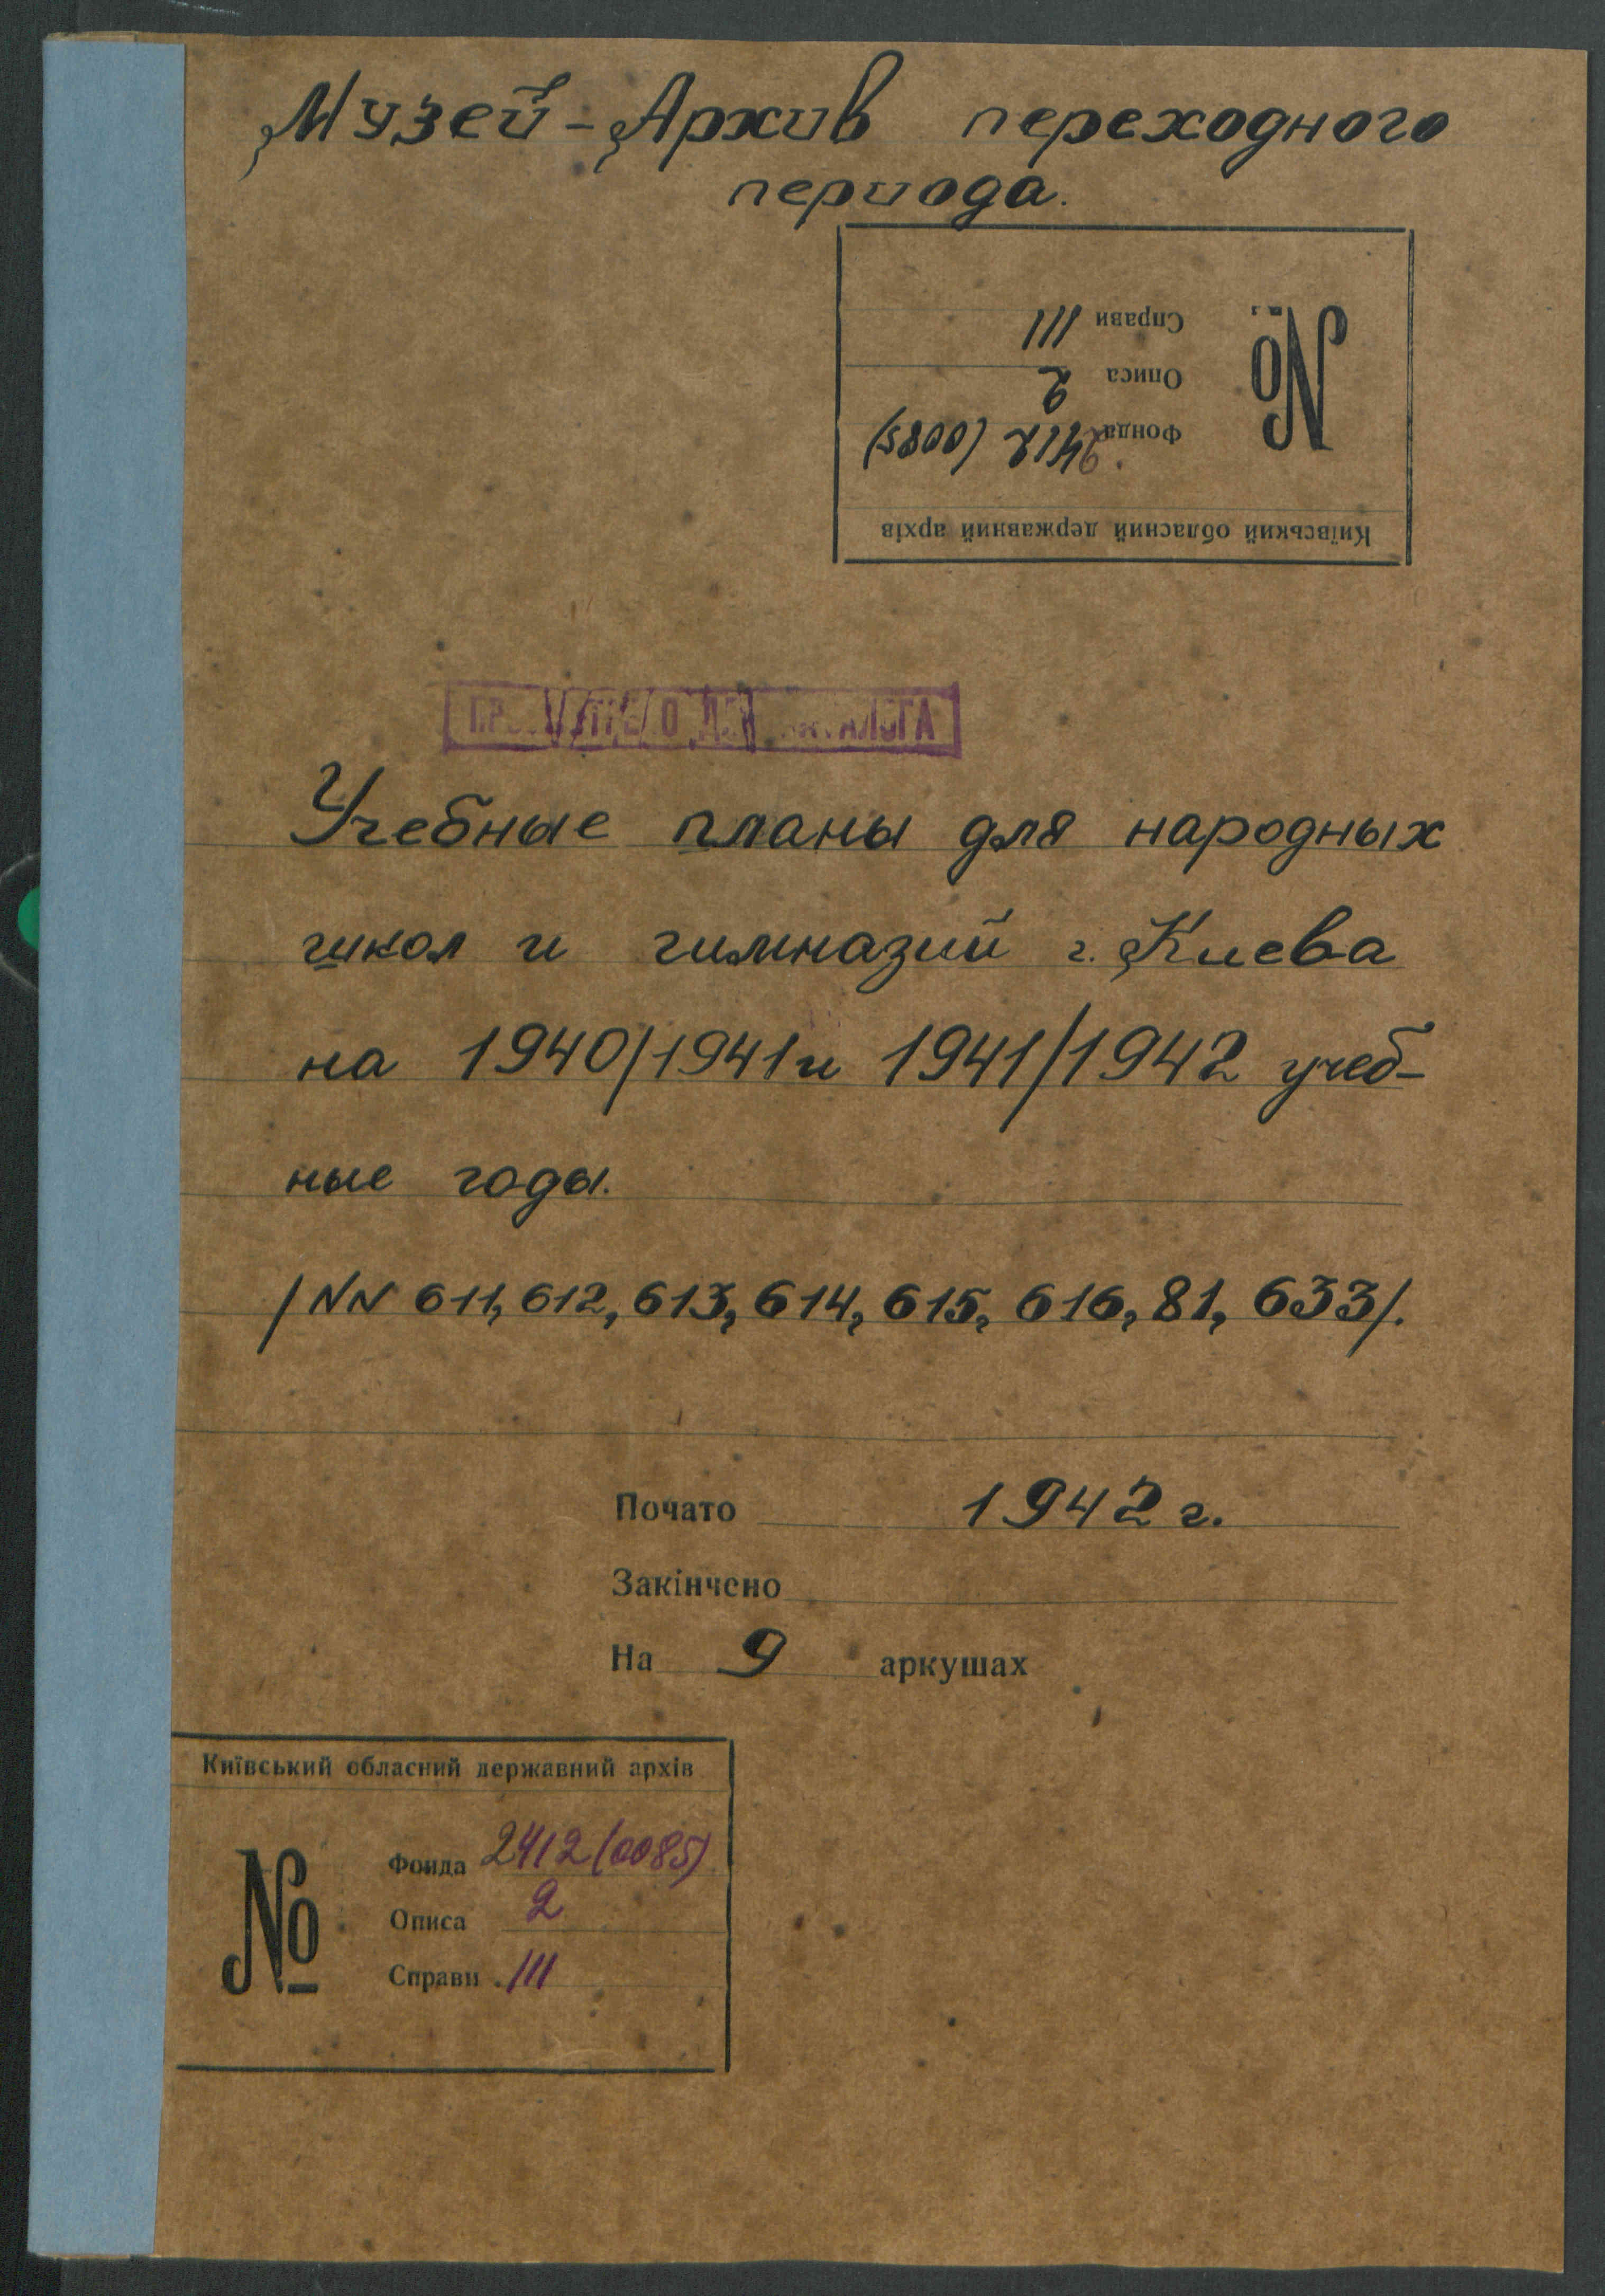 Музей-Архив переходного
периода.
Київський обласний державний архів
№
Фонда 2412 (0085)
Описа 2
Справи 111
Учебные планы для народных
школ и гимназий г. Киева
на 1940/1941 и 1941/1942 учеб-
ные годы.
/NN 611, 612, 613, 614, 615, 616, 81, 633/.
Почато 1942 г.
Закінчено
На 9 аркушах
Київський обласний державний архів
№
Фонда 2412 (0085)
Описа 2
Справи 111